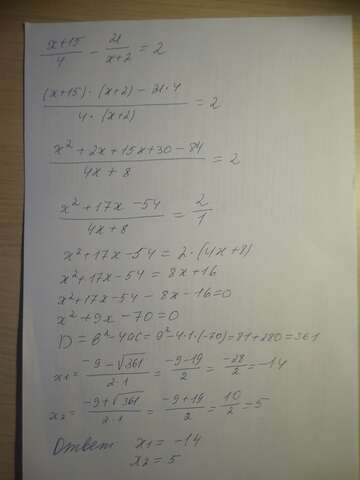 (x+15)/4 − 21/(x+2) = 2
((x+15)·(x+2) − 21·4)/(4·(x+2)) = 2
(x² + 2x + 15x + 30 − 84)/(4x + 8) = 2
(x² + 17x − 54)/(4x + 8) = 2/1
x² + 17x − 54 = 2·(4x + 8)
x² + 17x − 54 = 8x + 16
x² + 17x − 54 − 8x − 16 = 0
x² + 9x − 70 = 0
D = b² − 4ac = 9² − 4·1·(−70) = 81 + 280 = 361
x₁ = (−9 − √361)/(2·1) = (−9 − 19)/2 = −28/2 = −14
x₂ = (−9 + √361)/(2·1) = (−9 + 19)/2 = 10/2 = 5
Ответ x₁ = −14
x₂ = 5